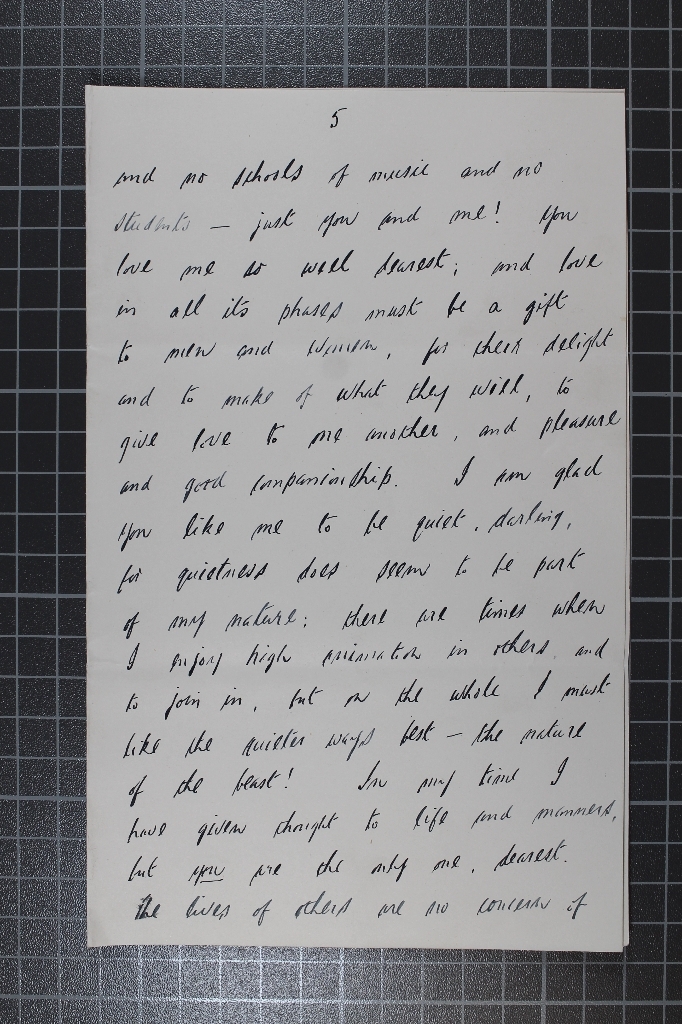 5
and no schools of music and no
students — just you and me! You
love me so well dearest; and love
in all its phases must be a gift
to men and women, for their delight
and to make of what they will, to
give love to one another, and pleasure
and good companionship. I am glad
you like me to be quiet, darling,
for quietness does seem to be part
of my nature; there are times when
I enjoy high animation in others and
to join in, but on the whole I must
like the quieter ways best — the nature
of the beast! In my time I
have given thought to life and manners,
but you are the only one, dearest.
The lives of others are no concern of